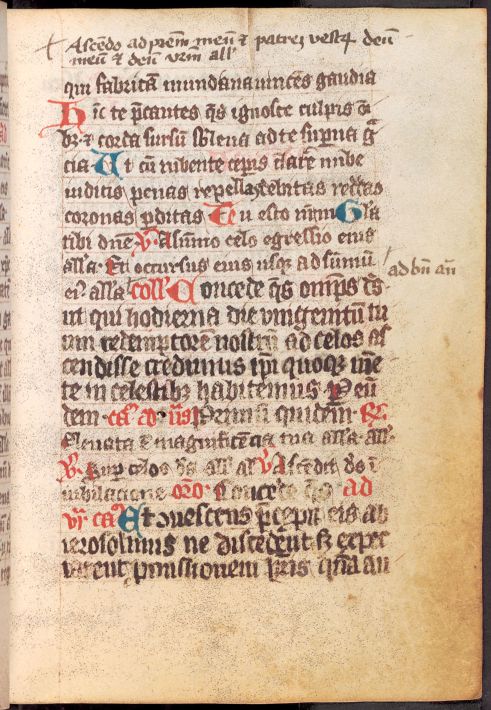 Ascēdo ad prēm meū & patrez vestꝝ deū
meū & deū vrm̄ all'
qui fabricā mundana uincēs gaudia
Hic te p̄cantes q̄s ignosce culpis om̄i
bꝫ & corda sursū subleua ad te supna grā
cia Ut cū rubente ceperis clare nube
iudicis penas repellas debitas reddas
coronas pditas Tu esto nrm̄ Glīa
tibi dn̄e V Asūmo celo egressio eius
all'a Et occursus eius usqꝫ ad sūmū
eiꝰ all'a coll' Concede q̄s omps ds̄
ad bn̄ an̄
ut qui hodierna die vnigenitū tu
um redemptorē nostrū ad celos as
cendisse credimus ipi quoqꝫ mēte
te in celestibꝫ habitemus P eū
dem ca ad Primū quidem R
Eleuata ē magnificēcia tua all'a all'
V Sup celos ds̄ all' all' V Ascēdit ds̄ ī
iubilacione oro Concede q̄s ad
vj ca Et conuescens p̄cepit eis ab
ierosolimis ne discederēt sꝫ expec
tarent pmissionem pris quā au